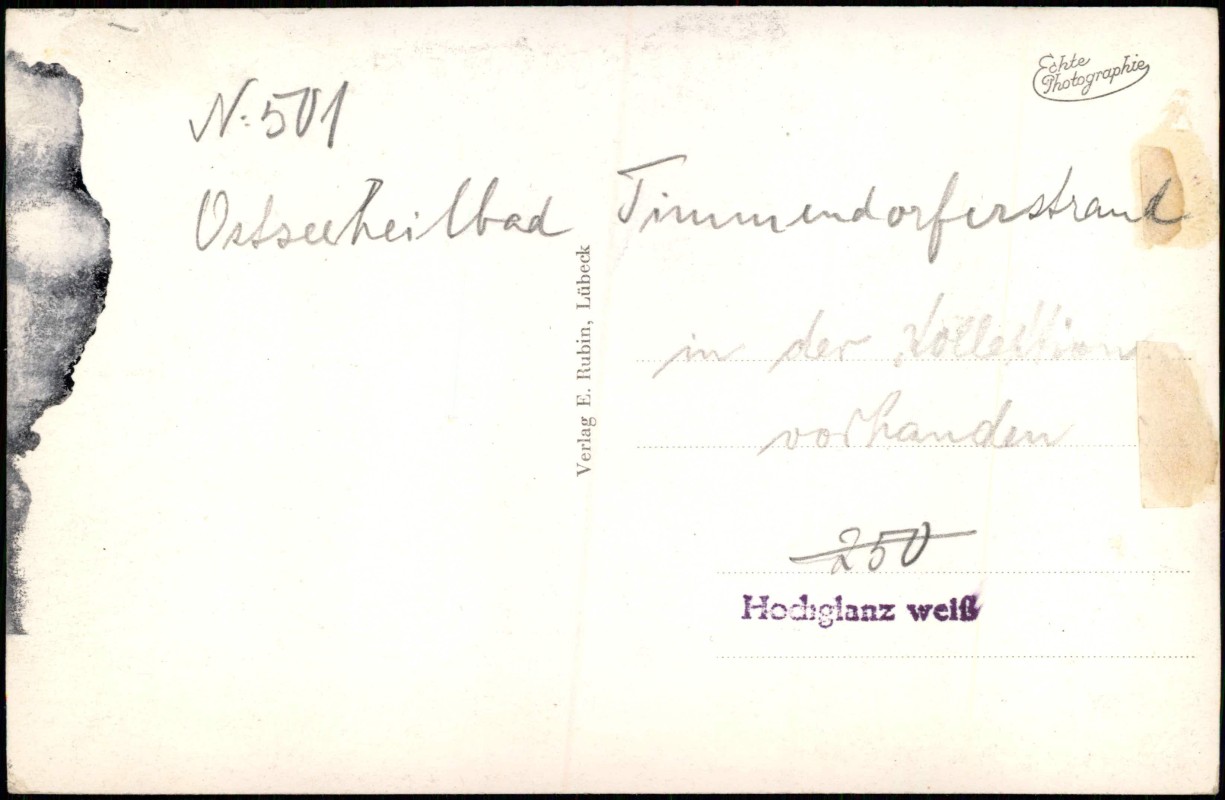 Echte
Photographie
N: 501
Ostseeheilbad Timmendorferstrand
Verlag E. Rubin, Lübeck
in der Kollektion
vorhanden
250
Hochglanz weiß